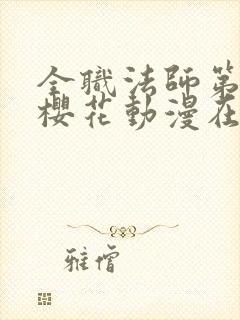 全職法師第
櫻花動漫在
雅僧